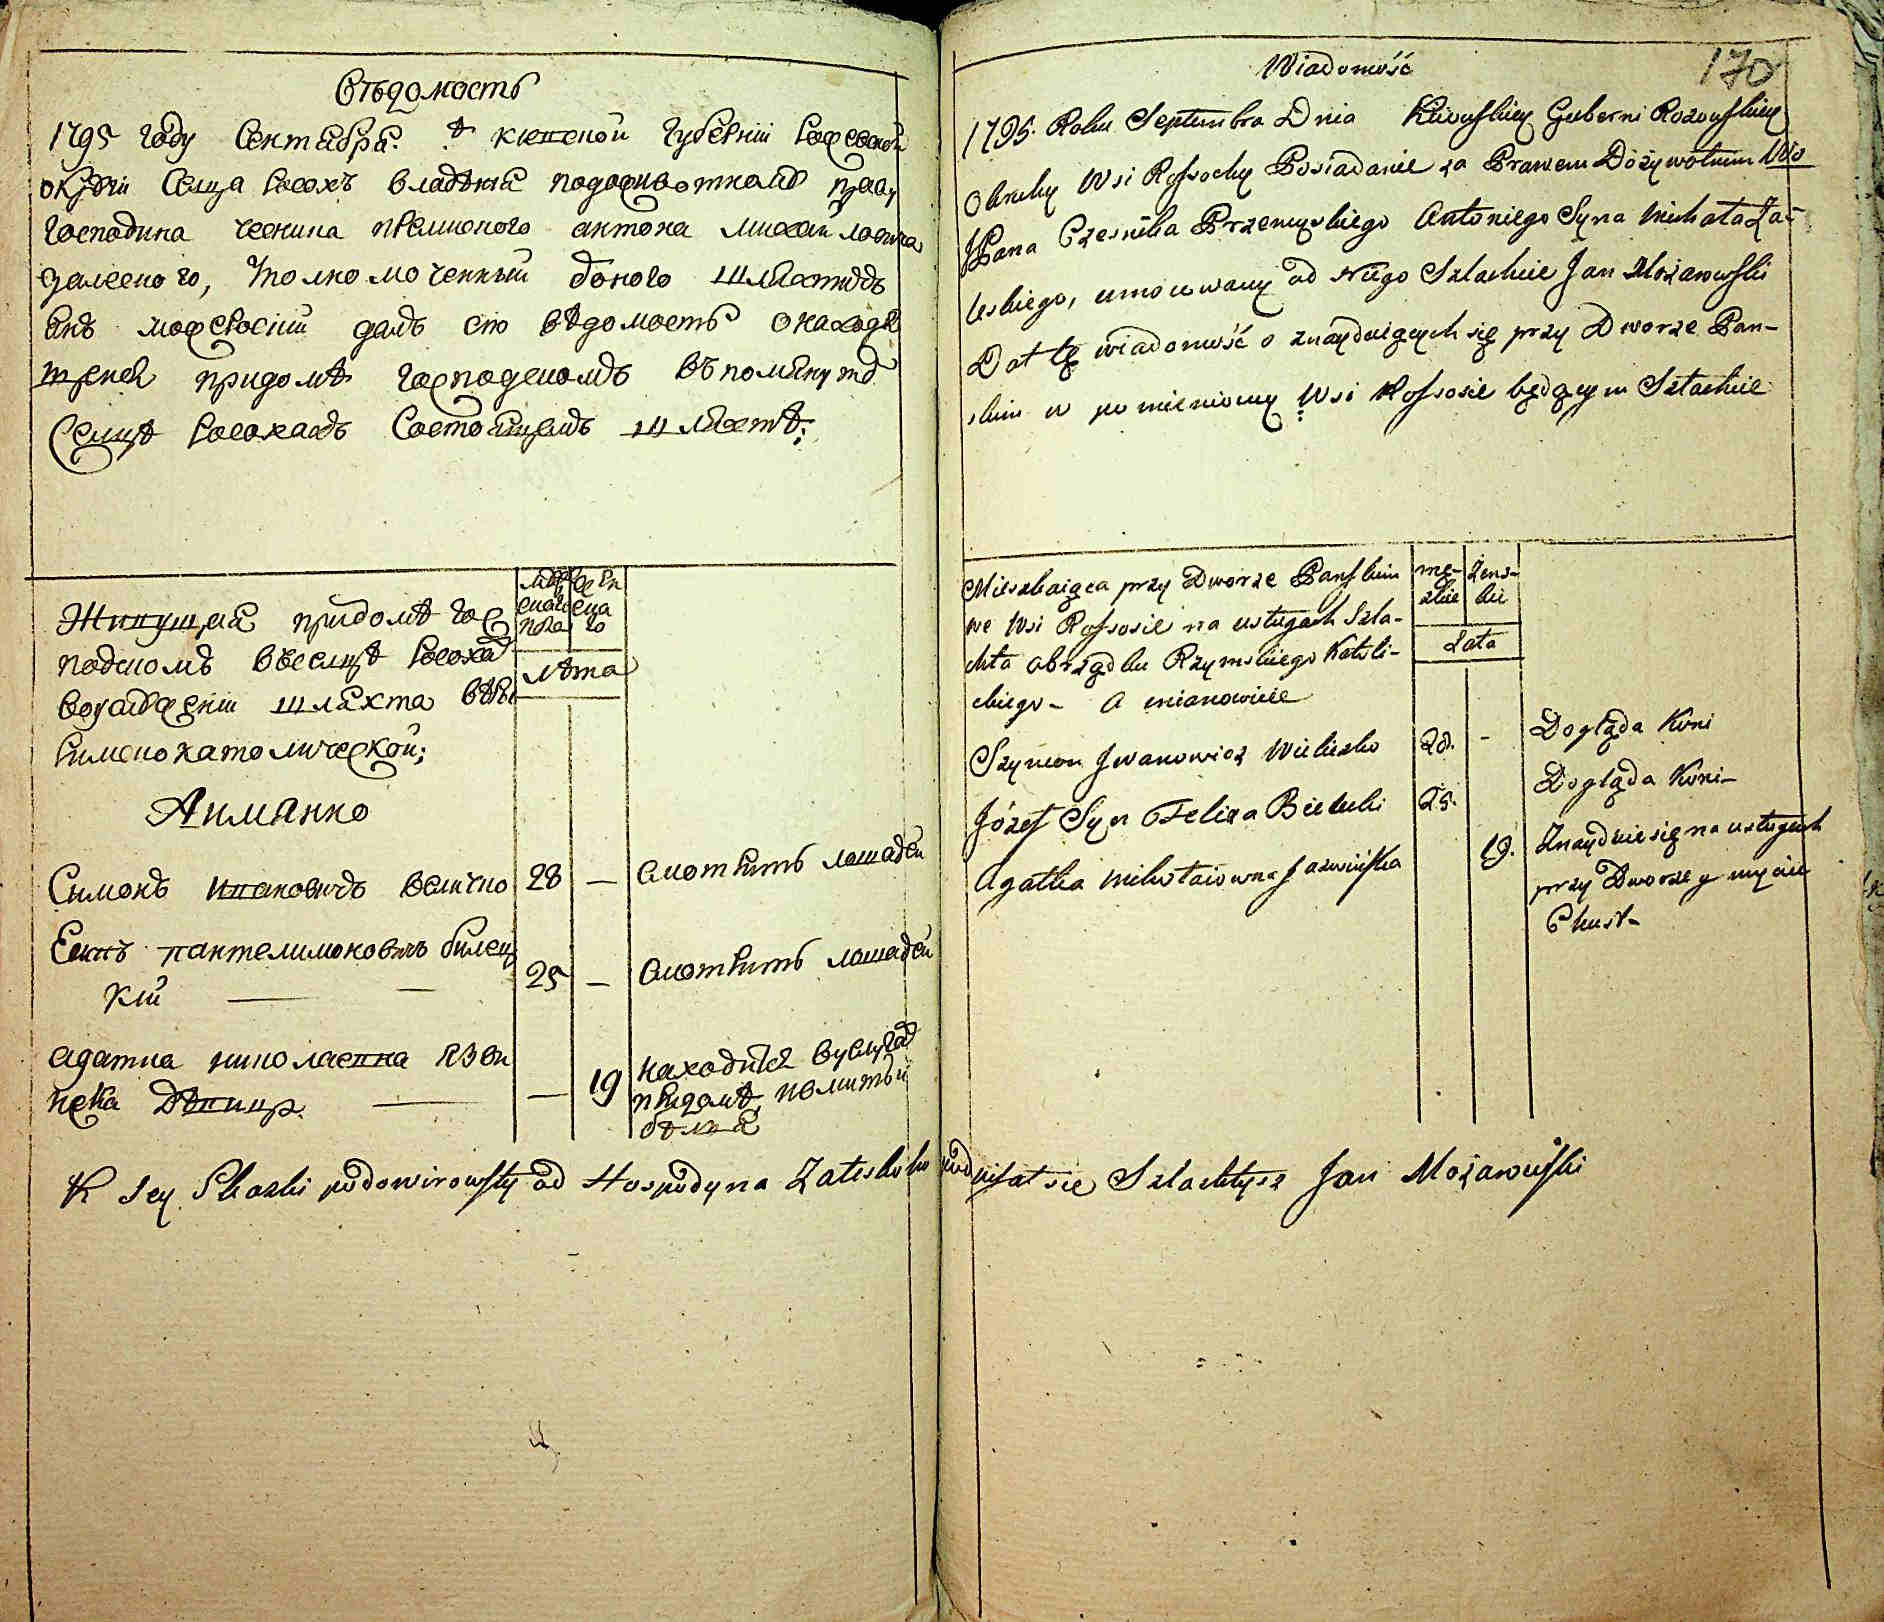 Вѣдомость
1795 году Сентабра. Киевской губерніи
округи Селца Росохъ владѣнія подоживотному праву
Господина чесника антона михайловича
залеского, полномоченный
можаровскій далъ сию вѣдомость о находя
при домѣ господскомъ въ помянутомъ
Селцѣ Росохахъ Состоящемъ шляхтѣ;
Живущая при домѣ гос
подскомъ въ селцѣ Росохахъ
вогслуженіи шляхта вѣры
Римскокатолической;
А имянно
мужескаго пола
женскаго
лѣта
Симонъ ивановичъ величко 28 — смотрить лошадей
Есипъ пантелимоновичъ билец
кій — 25 — смотрить лошадей
агатка николаевна язви
нска дѣвица — — 19 находится вуслугах
при домѣ, помитьи
бѣлья
170
Wiadomość
1795. Roku Septembra Dnia Kiiowskiey Guberni Rozowskiey
Okruhy Wsi Rossochy Posiadanie za Prawem Dożywotnim Wo
JPana Czesnika Przemyskiego Antoniego Syna Michała Za-
leskiego, umocowany od Niego Szlachcic Jan Możarowski
Dał tę wiadomość o znayduiących się przy Dworze Pan-
skim w pomienioney Wsi Rossosie będącym Szlachcie
Mieszkaiąca przy Dworze Panskim
we Wsi Rossosie na usługach Szla-
chta obrządku Rzymskiego Katoli-
ckiego - A mianowicie
mę-
zkie
Żens-
kie
Lata
Szymon Jwanowicz Wieliczko 28. - Dogląda Koni
Józef Syn Felixa Bielecki 25. Dogląda Koni-
Agatka Mikołaiowna Jazwińska 19. Znayduie się na usługach
przy Dworze y myciu
Chust-
K sey Skazki podowirowsty od Hospodyna Zaleskoho podpisał sie Szlachtycz Jan Możarowski